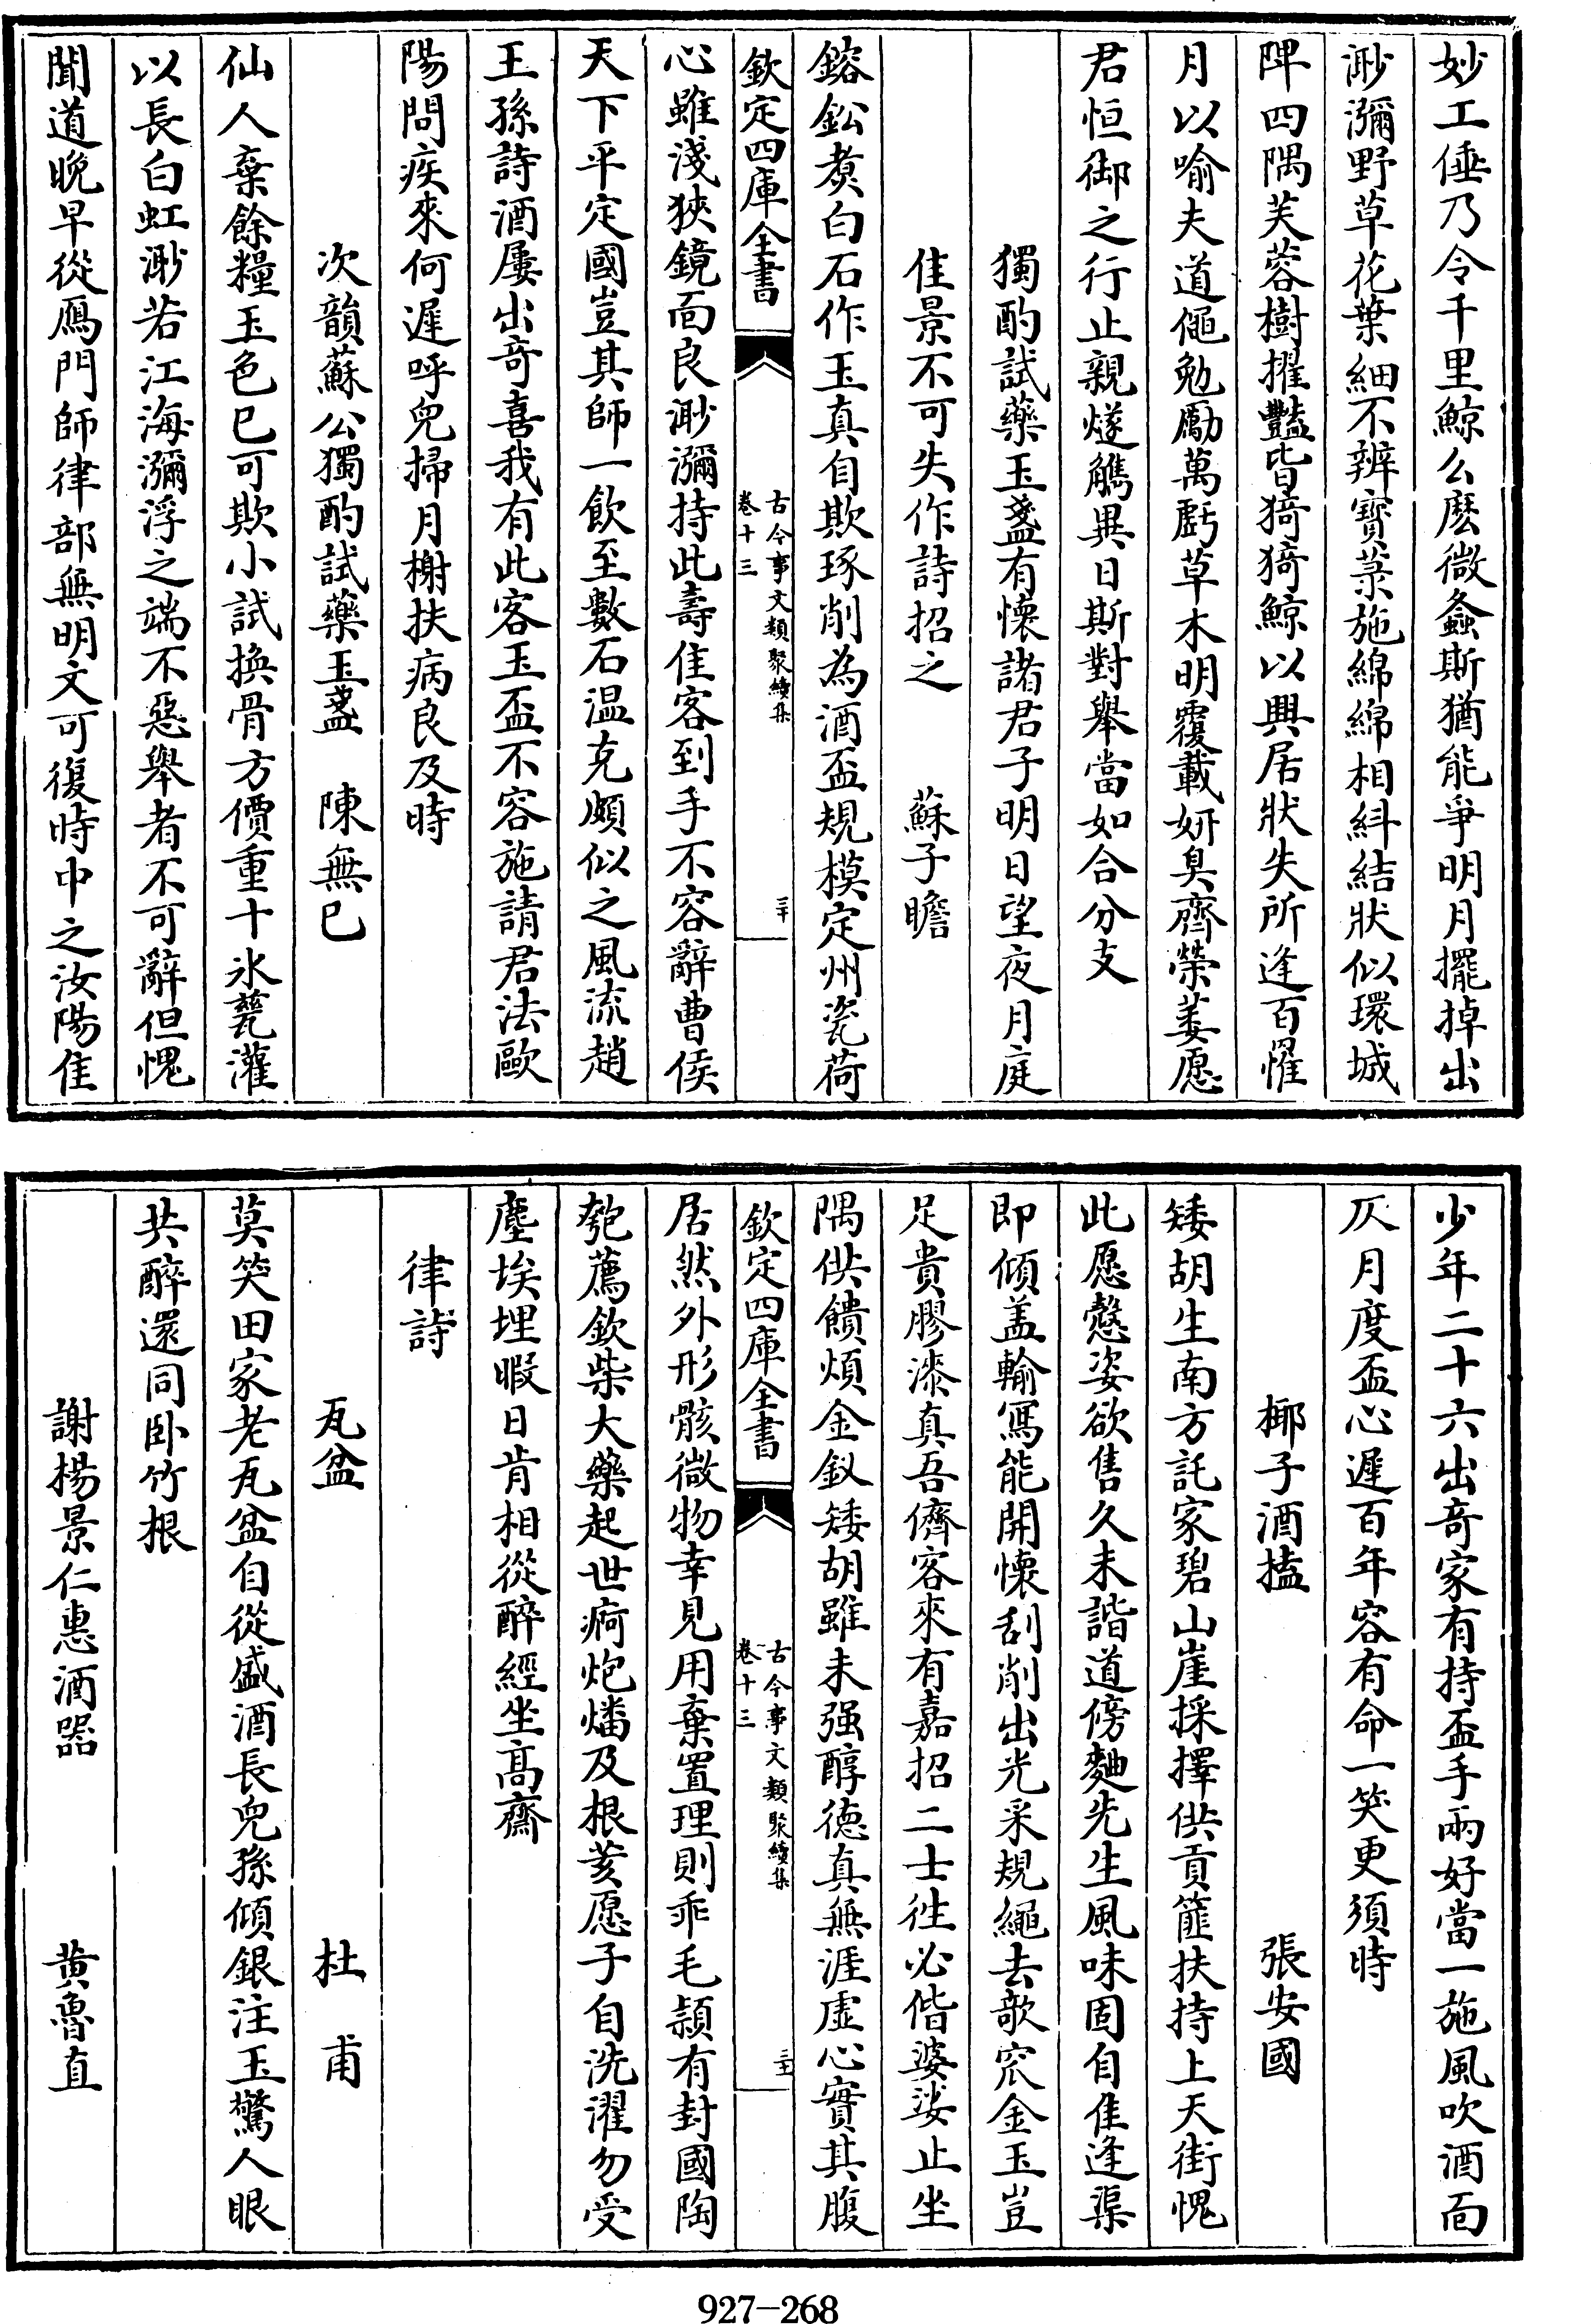 妙工倕乃令千里鯨么麽微螽斯猶能爭明月擺掉出
渺瀰野草花葉細不辨薋菉葹綿綿相糾結狀似環城
陴四隅芙蓉樹擢豔皆猗猗鯨以興居狀失所逢百罹
月以喻夫道僶勉勵萬虧草木明覆載妍臭齊榮萎愿
君恒御之行止親燧觿異日期對舉當如合分支
獨酌試藥玉盞有懷諸君子明日望夜月庭
佳景不可失作詩招之　蘇子瞻
鎔鉛煑白石作玉真自欺琢削為酒盃規模定州瓷荷
欽定四庫全書
古今事文類聚續集
卷十三
三十
心雖淺狹鏡面良渺瀰持此壽佳客到手不容辭曹侯
天下平定國豈其師一飲至數石温克頗似之風流趙
王孫詩酒屢出奇喜我有此客玉盃不容施請君法歐
陽問疾來何遲呼兒掃月榭扶病良及時
次韻蘇公獨酌試藥玉盞　陳無已
仙人棄餘糧玉色已可欺小試換骨方價重十氷甆灌
以長白虹渺若江海瀰浮之端不惡舉者不可辭但愧
聞道晚早從鴈門師律部無明文可復時中之汝陽佳
少年二十六出奇家有持盃手兩好當一施風吹酒面
仄月度盃心遲百年容有命一笑更須時
椰子酒榼　張安國
矮胡生南方託家碧山崖採擇供貢篚扶持上天街愧
此愿慤姿欲售久未諧道傍麯先生風味固自佳逢渠
即傾盖輸寫能開懷刮削出光采規繩去欹窊金玉豈
足貴膠漆真吾儕客來有嘉招二士徃必偕婆娑止坐
隅供饋煩金釵矮胡雖未强醇德真無涯虛心實其腹
欽定四庫全書
古今事文類聚續集
卷十三
三十一
居然外形骸微物幸見用棄置理則乖毛頴有封國陶
匏薦欽柴大藥起世痾炮燔及根荄愿子自洗濯勿受
塵埃埋暇日肯相從醉經坐高齋
律詩
瓦盆　杜甫
莫笑田家老瓦盆自從盛酒長兒孫傾銀注玉驚人眼
共醉還同卧竹根
謝楊景仁惠酒器　黄魯直
927-268